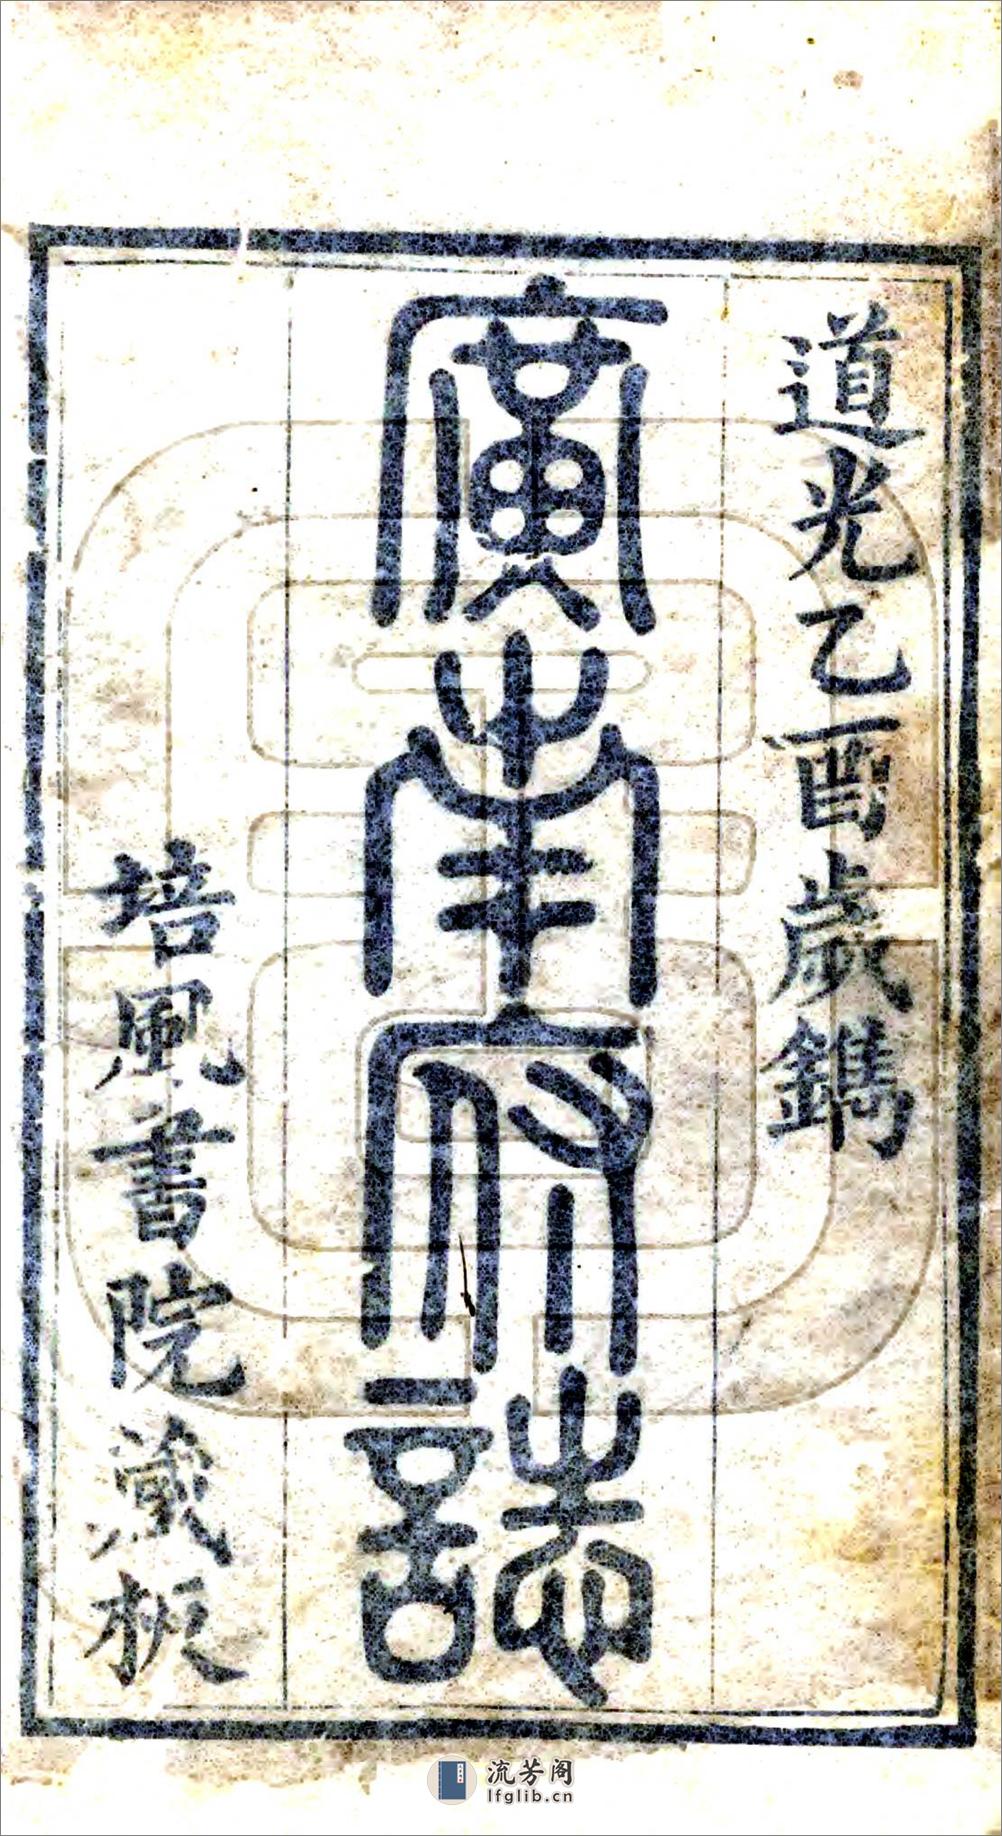 道光乙酉歲鐫
廣南府誌
培風書院藏板
流芳阁
lfglib.cn